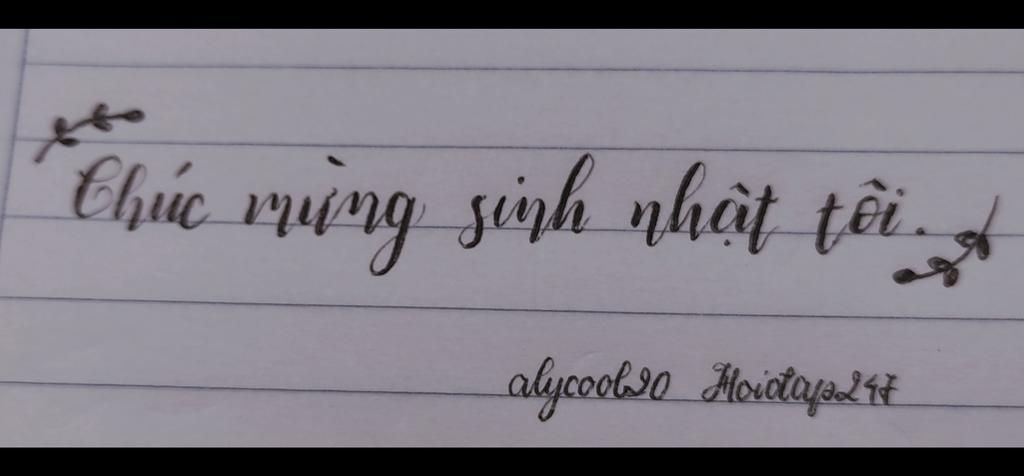 Chúc mừng sinh nhật tôi.
alycool20 Hoidap247